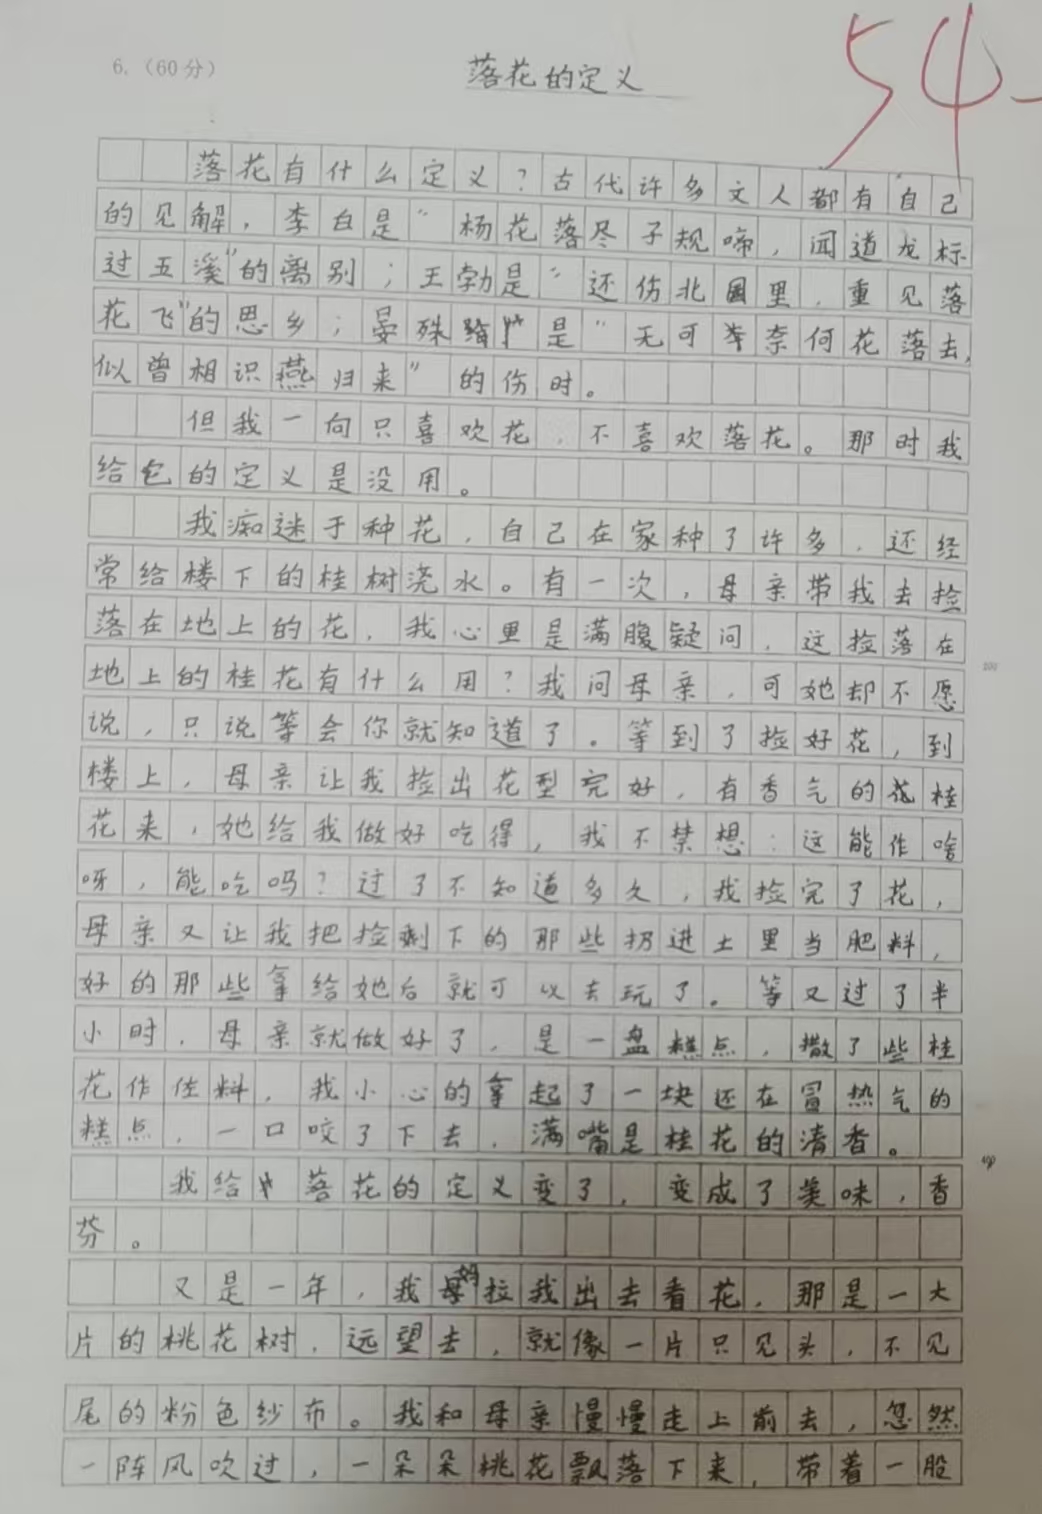 6.（60分）
落花的定义
54
落花有什么定义？古代许多文人都有自己
的见解，李白是“杨花落尽子规啼，闻道龙标
过五溪”的离别；王勃是“还伤北国里，重见落
花飞”的思乡；晏殊是“无可奈何花落去，
似曾相识燕归来”的伤时。
但我一向只喜欢花，不喜欢落花。那时我
给它的定义是没用。
我痴迷于种花，自己在家种了许多，还经
常给楼下的桂树浇水。有一次，母亲带我去捡
落在地上的花，我心里是满腹疑问，这捡落在
地上的桂花有什么用？我问母亲，可她却不愿
说，只说等会你就知道了。等到了捡好花，到
楼上，母亲让我捡出花型完好，有香气的花桂
花来，她给我做好吃得，我不禁想：这能作啥
呀，能吃吗？过了不知道多久，我捡完了花，
母亲又让我把捡剩下的那些扔进土里当肥料，
好的那些拿给她后就可以去玩了。等又过了半
小时，母亲就做好了，是一盘糕点，撒了些桂
花作佐料，我小心的拿起了一块还在冒热气的
糕点，一口咬了下去，满嘴是桂花的清香。
我给落花的定义变了，变成了美味，香
芬。
又是一年，我妈拉我出去看花，那是一大
片的桃花树，远望去，就像一片只见头，不见
尾的粉色纱布。我和母亲慢慢走上前去，忽然
一阵风吹过，一朵朵桃花飘落下来，带着一股